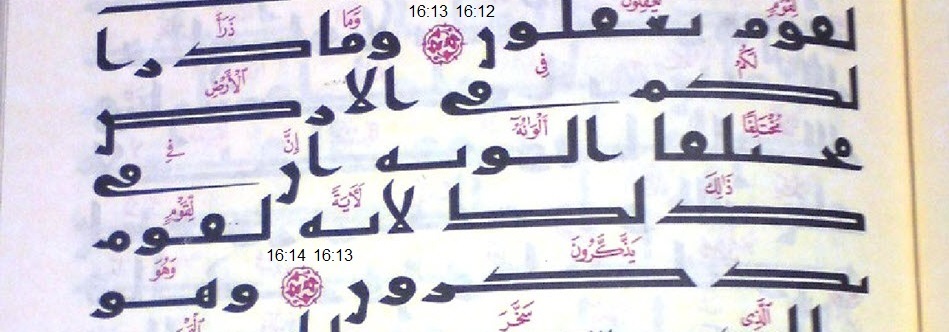 16:13 16:12
لِقَوْمٍ يَعْقِلُونَ وَمَا ذَرَأَ
لقوم يعقلون وما ذرا
لَكُمْ فِي الْأَرْضِ
لكم في الارض
مُخْتَلِفًا أَلْوَانُهُ إِنَّ فِي
مختلفا الونه ان في
ذَٰلِكَ لَآيَةً لِقَوْمٍ
ذلك لايه لقوم
يَذَّكَّرُونَ وَهُوَ
16:14 16:13
يذكرون وهو
الَّذِي سَخَّرَ